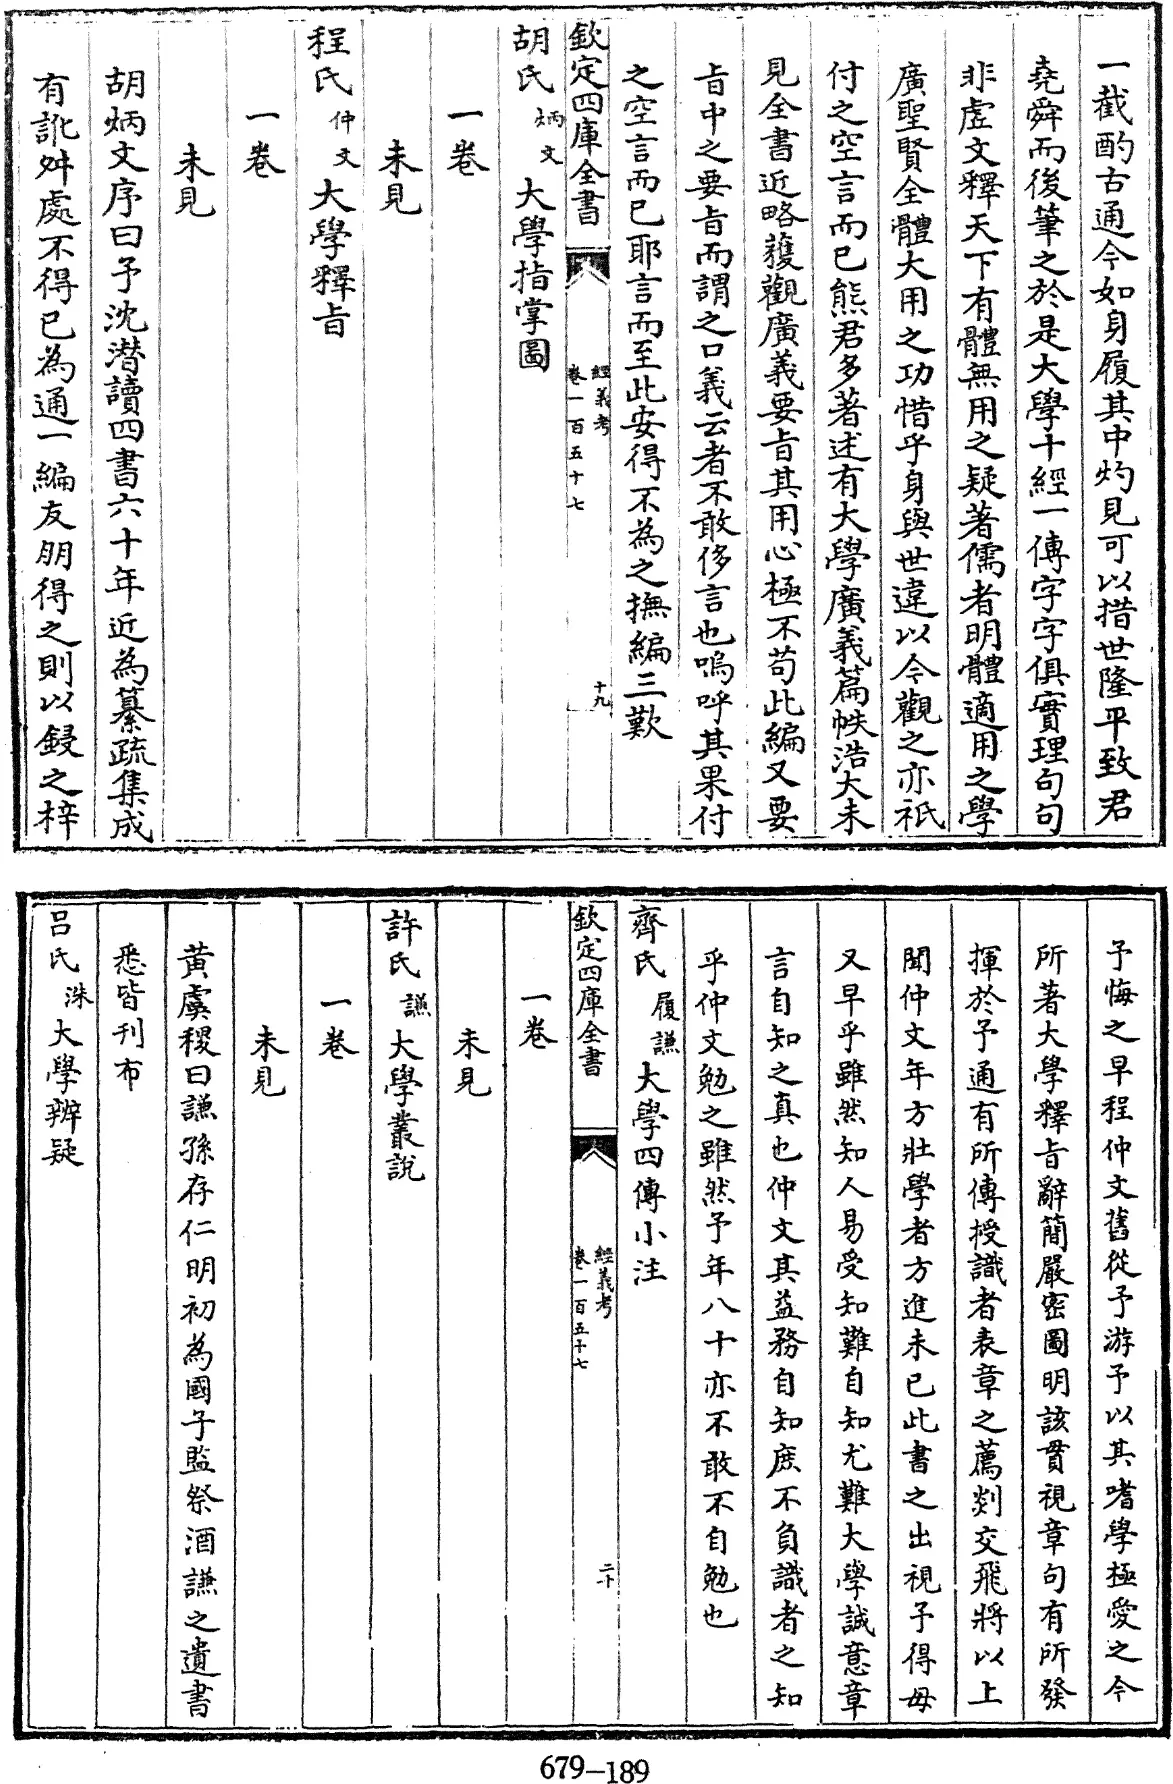 一截酌古通今如身履其中灼見可以措世隆平致君
堯舜而後筆之於是大學十經一傳字字俱實理句句
非虚文釋天下有體無用之疑著儒者明體適用之學
廣聖賢全體大用之功惜乎身與世違以今觀之亦祇
付之空言而已熊君多著述有大學廣義篇帙浩大未
見全書近略獲觀廣義要㫖其用心極不苟此編又要
㫖中之要㫖而謂之口義云者不敢侈言也嗚呼其果付
之空言而已耶言而至此安得不為之撫編三歎
欽定四庫全書
經義考
卷一百五十七
十九
胡氏炳文大學指掌圖
一卷
未見
程氏仲文大學釋㫖
一卷
未見
胡炳文序曰予沈潛讀四書六十年近為纂疏集成
有訛舛處不得已為通一編友朋得之則以鋟之梓
予悔之早程仲文舊從予游予以其嗜學極愛之今
所著大學釋㫖辭簡嚴密圖明該貫視章句有所發
揮於予通有所傳授識者表章之薦剡交飛將以上
聞仲文年方壯學者方進未已此書之出視予得毋
又早乎雖然知人易受知難自知尤難大學誠意章
言自知之真也仲文其益務自知庶不負識者之知
乎仲文勉之雖然予年八十亦不敢不自勉也
齊氏履謙大學四傳小注
欽定四庫全書
經義考
卷一百五十七
二十
一卷
未見
許氏謙大學叢說
一卷
未見
黄虞稷曰謙孫存仁明初為國子監祭酒謙之遺書
悉皆刊布
呂氏洙大學辨疑
679-189